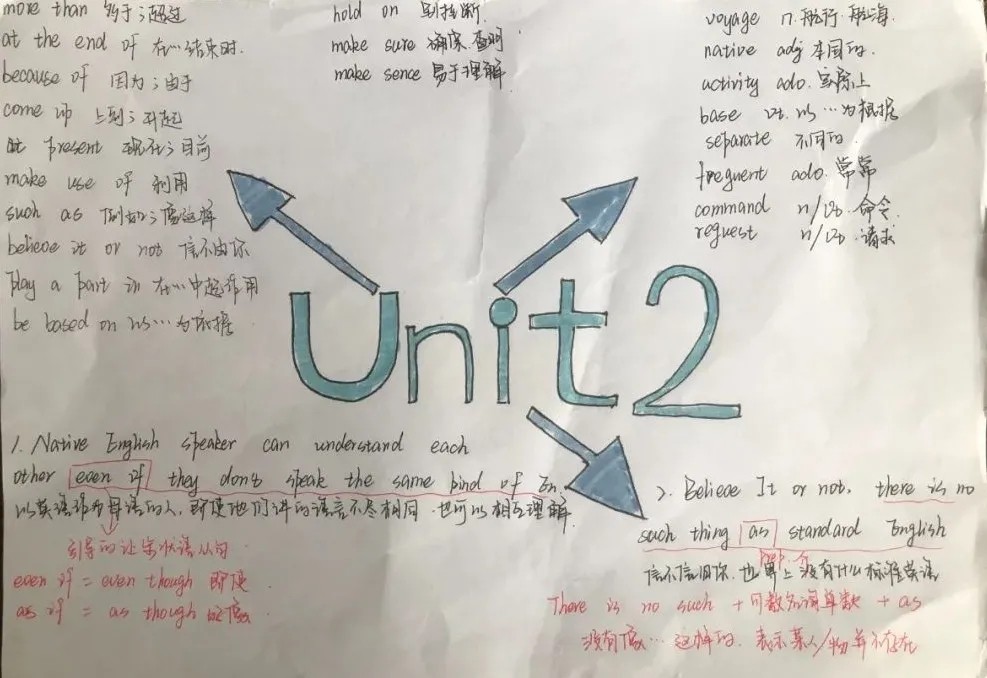 more than 多于；超过
at the end of 在…结束时.
because of 因为；由于
come up 上到；引起
at present 现在；目前
make use of 利用
such as 例如；像这样
believe it or not 信不由你
Play a part in 在…中起作用
be based on 以…为依据
hold on 别挂断.
make sure 确保.查明
make sence 易于理解
voyage n.航行.航海.
native adj 本国的.
activity adv.实际上
base vt. 以…为根据
separate 不同的.
frequent adv.常常
command n/vb.命令.
request n/vb.请求
Unit 2
1. Native English speaker can understand each
other even if they don't speak the same kind of En.
以英语作为母语的人，即使他们讲的语言不尽相同.也可以相互理解.
引导的让步状语从句.
even if = even though 即使.
as if = as though 似像.
2. Believe It or not, there is no
such thing as standard English
prep. 介
信不信由你.世界上没有什么标准英语
There is no such + 可数名词单数 + as
没有像…这样的.表示某人/物并不存在